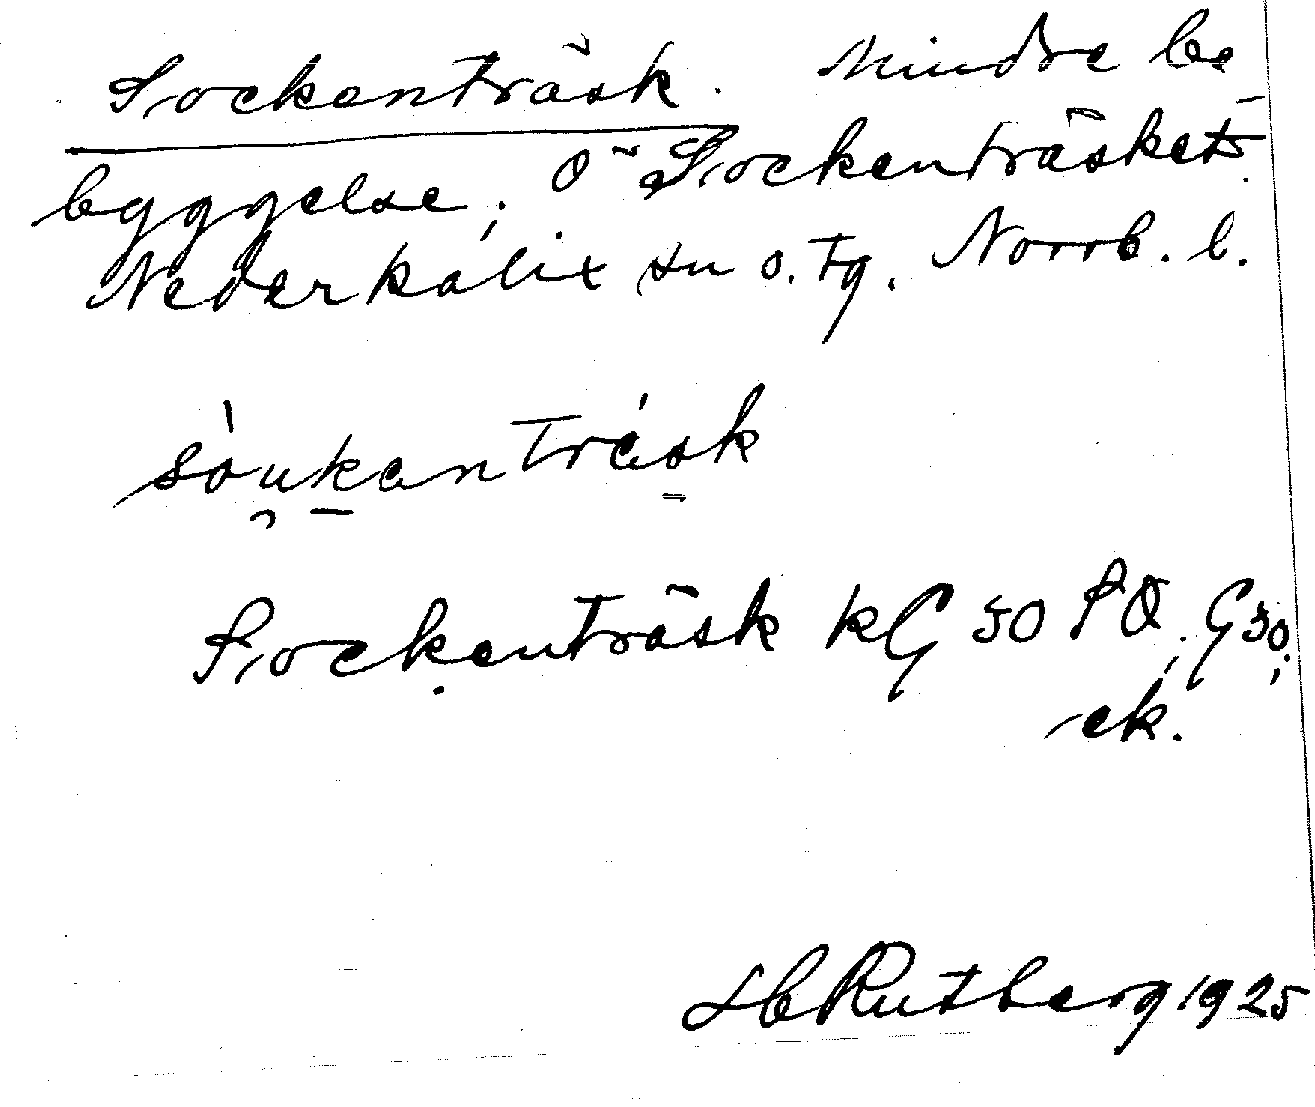 Sockenträsk. Mindre be-
byggelse, O˜ Sockenträsket.
Nederkalix sn o. tg. Norrb. l.
sòukanträsk
Sockenträsk kG 50 SO, G50;
ek.
HC Rutberg 1925